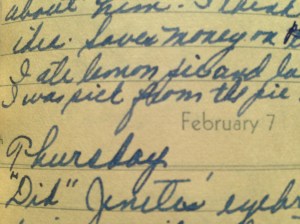 about him. I think
idea. Saves money on
I ate lemon pie and
I was sick from the pie.
February 7
Thursday
"Did" Jenita's